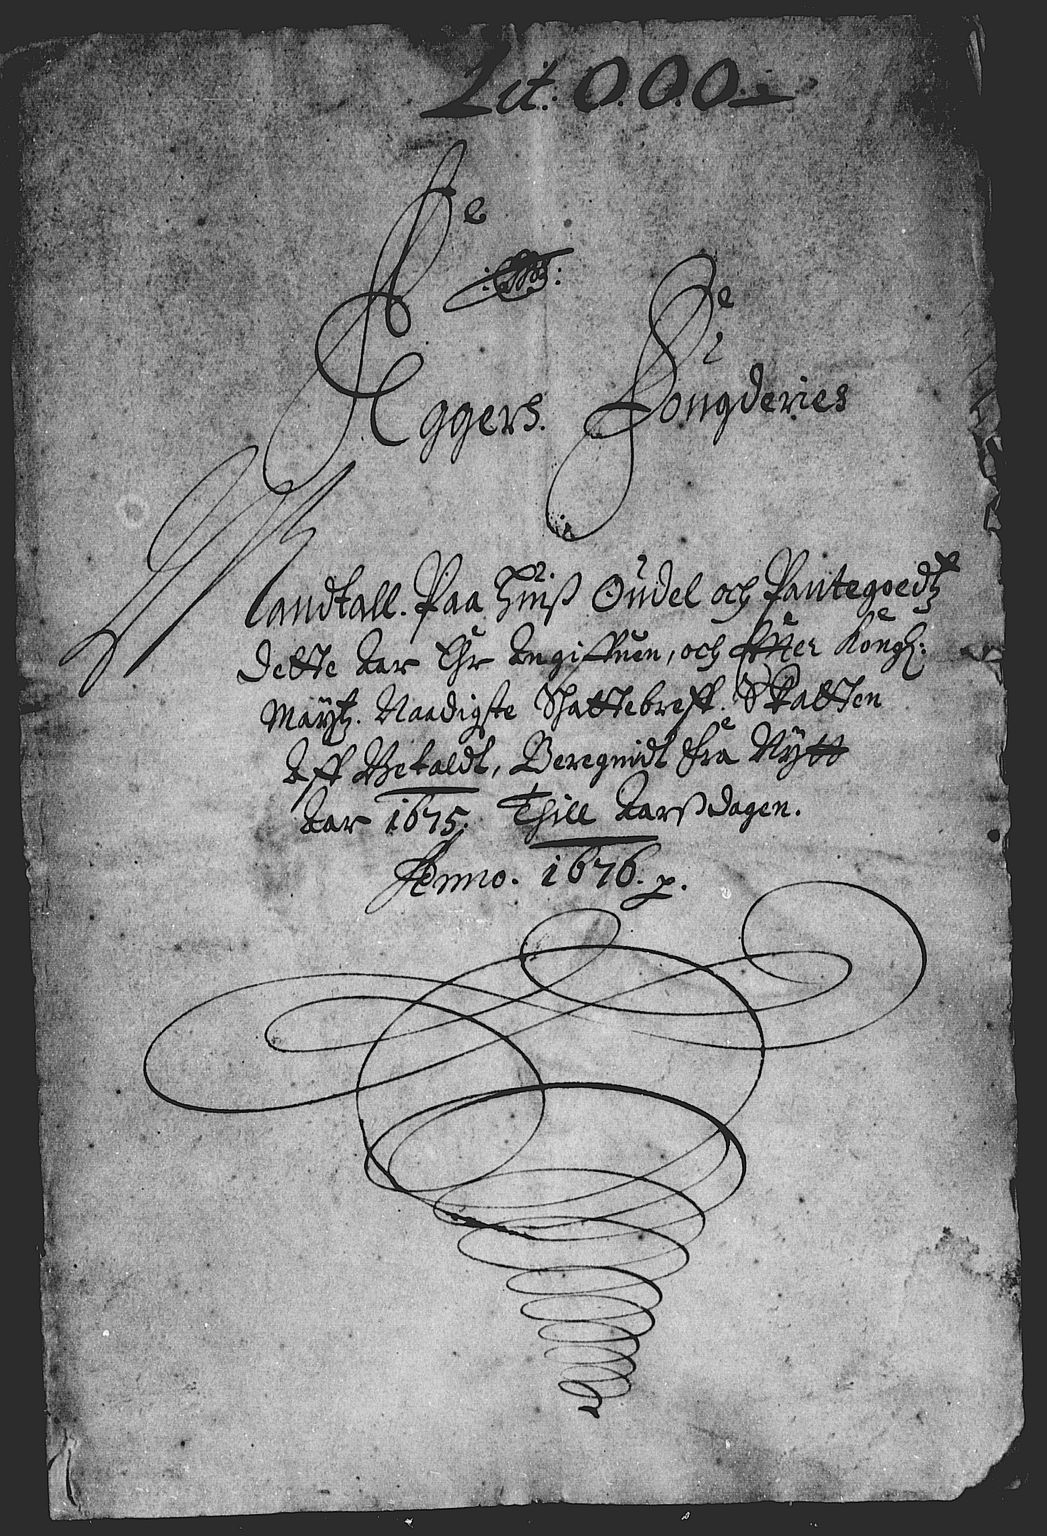 Lit. O.O.O.
Aggers. Fougderies
Mandtall. Paa huis Oudel och Pantegoedtz
dette Aar Ehr Angiffuen, och Effter Kongl:
Mayts. Naadigste Schattebreff. Skatten
Aff Betaldt, Beregnidt fra Nytt
Aar 1675. Thill Aarsdagen.
Anno. 1676. p.